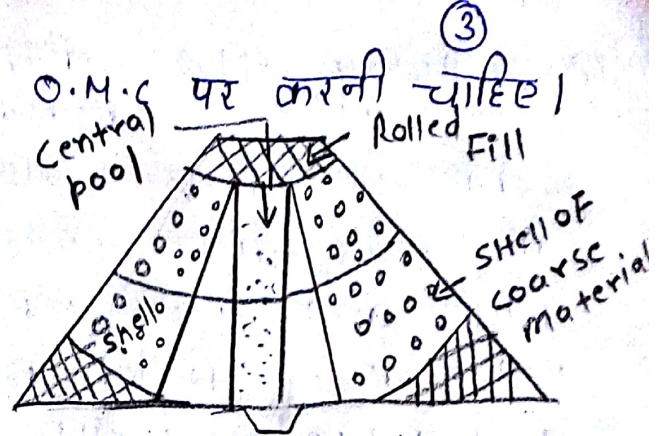 ③
O.M.C पर करनी चाहिए।
Central
pool
Rolled
Fill
SHell OF
coarse
material
Shell